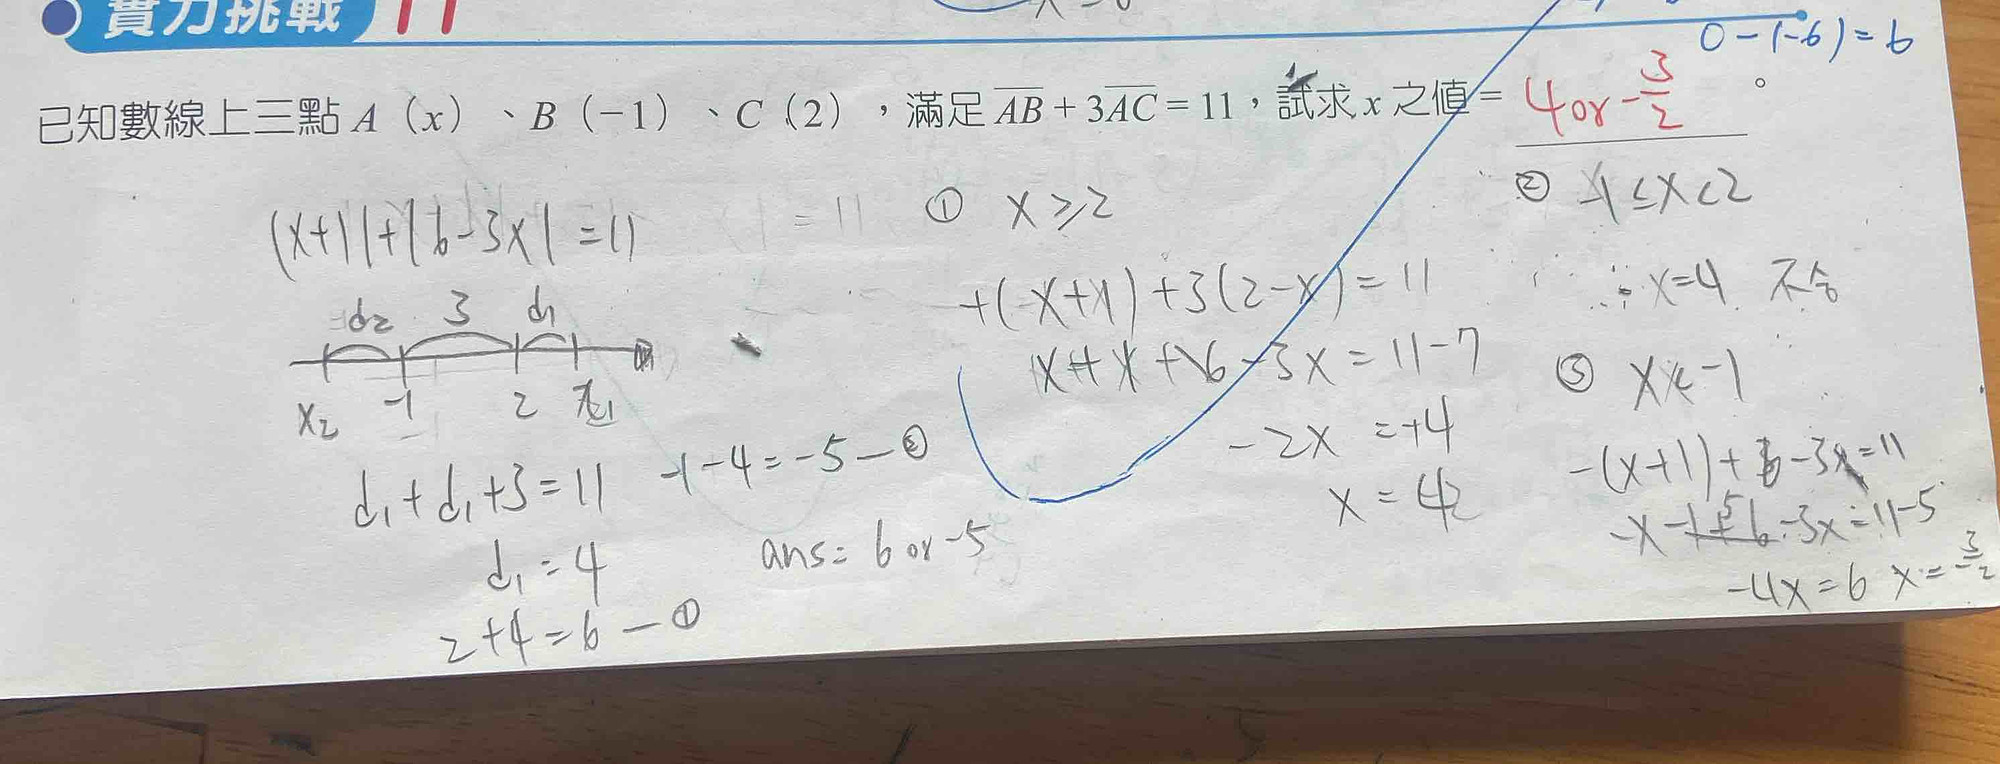 實力挑戰 11
0-(-6)=6
已知數線上三點 A(x)、B(-1)、C(2),滿足 AB + 3AC = 11,試求 x 之值 = 4 or -3/2 。
|x+1|+|6-3x|=11
d2 3 d1
x2 -1 2 x1
d1+d1+3=11
d1=4
2+4=6-①
-1-4=-5-②
ans= 6 or -5
① x≥2
+(-x+1)+3(2-x)=11
x+x+6-3x=11-7
-2x=+4
x=4
② -1≤x<2
∴x=4 不合
③ x<-1
-(x+1)+6-3x=11
-x-1+6-3x=11-5
-4x=6 x=-3/2